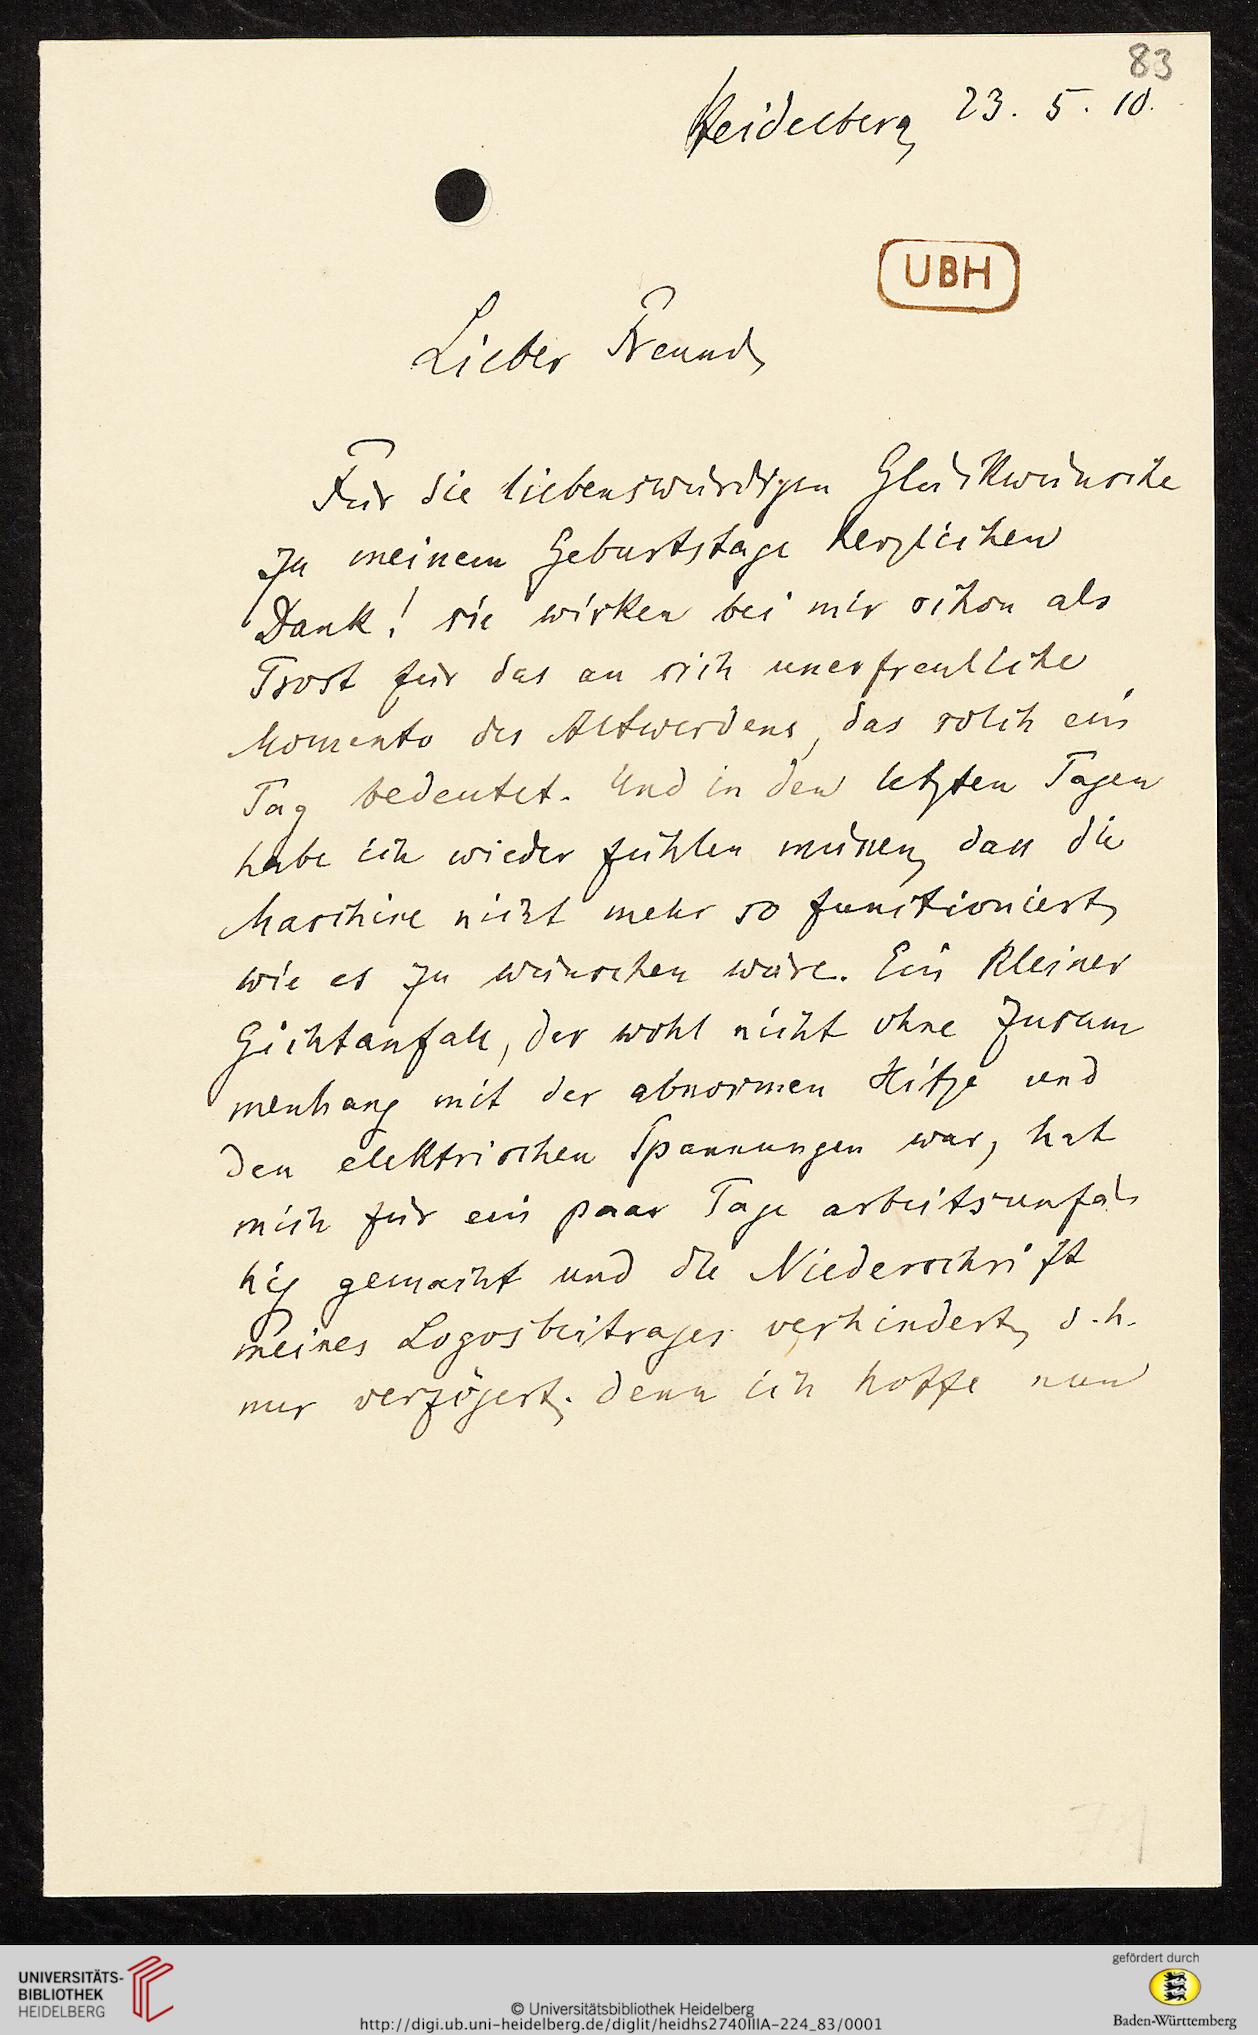 83
Heidelberg, 23. 5. 10.
UBH
Lieber Freund,
Für die liebenswürdigen Glückwünsche
zu meinem Geburtstage herzlichen
Dank! sie wirken bei mir schon als
Trost für das an sich unerfreuliche
Momento des Altwerdens, das solch ein
Tag bedeutet. Und in den letzten Tagen
habe ich wieder fühlen müssen, dass die
Maschine nicht mehr so functioniert,
wie es zu wünschen wäre. Ein kleiner
Gichtanfall, der wohl nicht ohne Zusam
menhang mit der abnormen Hitze und
den elektrischen Spannungen war, hat
mich für ein paar Tage arbeitsunfä
hig gemacht und die Niederschrift
meines Logosbeitrages verhindert, d.h.
nur verzögert; denn ich hoffe nun
UNIVERSITÄTS-
BIBLIOTHEK
HEIDELBERG
© Universitätsbibliothek Heidelberg
http://digi.ub.uni-heidelberg.de/diglit/heidhs2740IIIA-224_83/0001
gefördert durch
Baden-Württemberg